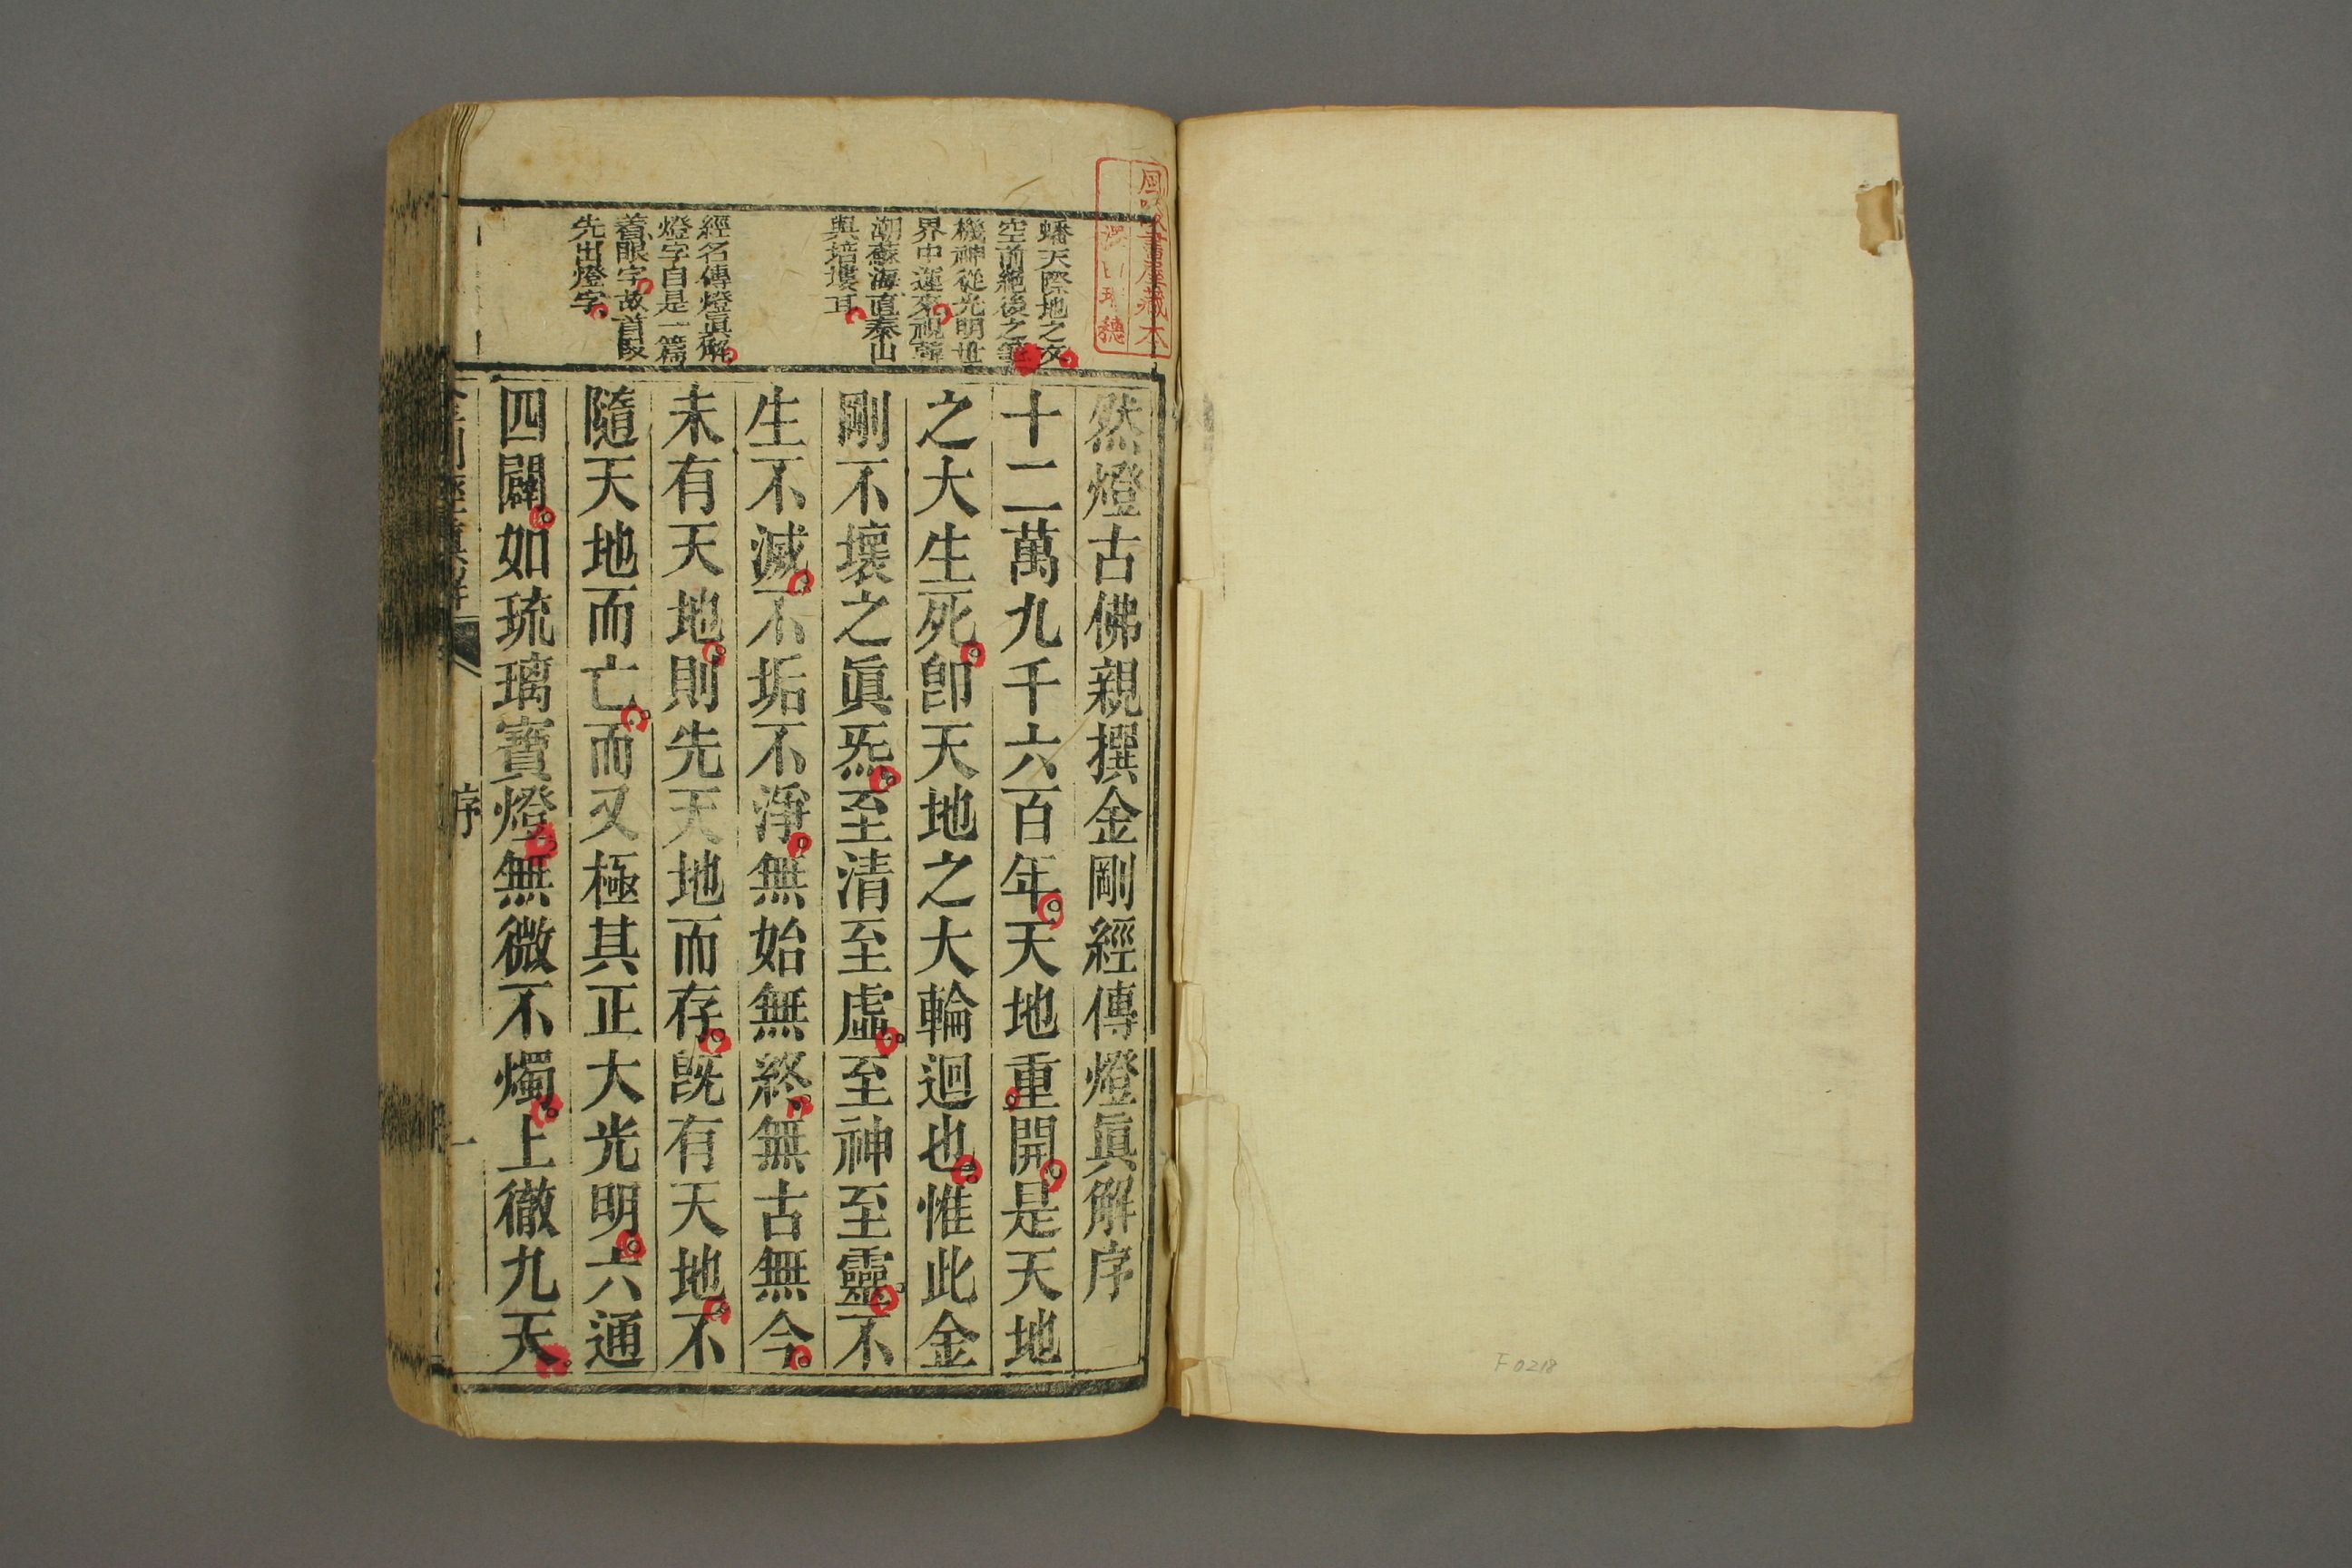 然燈古佛親撰金剛經傳燈眞解序
十二萬九千六百年天地重開是天地
之大生死卽天地之大輪迴也惟此金
剛不壞之眞炁至清至虛至神至靈不
生不滅不垢不淨無始無終無古無今
未有天地則先天地而存旣有天地不
隨天地而亡而又極其正大光明六通
四闢如琉璃寶燈無微不燭上徹九天
蟠天際地之文
空前絕後之筆
機神從光明世
界中運來視韓
潮蘇海直泰山
與培塿耳
經名傳燈眞解
燈字自是一篇
着眼字故首段
先出燈字
序
一
藏本
F0218